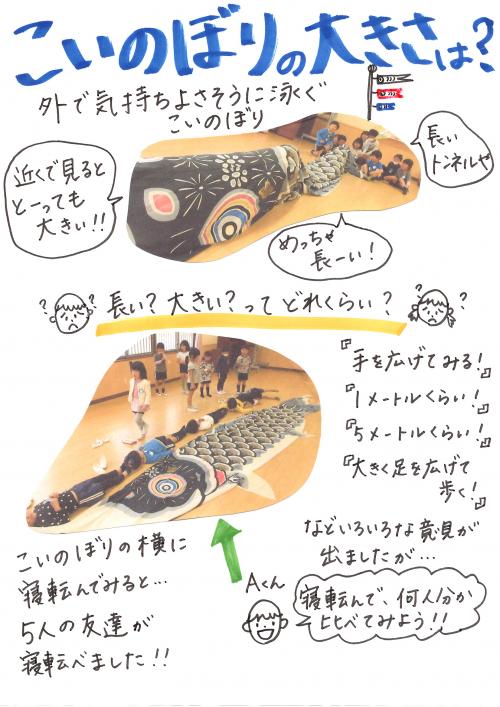 こいのぼりの大きさは?
外で気持ちよさそうに泳ぐ
こいのぼり
近くで見ると
とーっても
大きい!!
長い
トンネルや
めっちゃ
長ーい!
長い?大きい?ってどれくらい?
『手を広げてみる!』
『1メートルくらい!』
『5メートルくらい!』
『大きく足を広げて
歩く!』
などいろいろな意見が
出ましたが…
Aくん
寝転んで、何人分か
比べてみよう!!
こいのぼりの横に
寝転んでみると…
5人の友達が
寝転べました!!